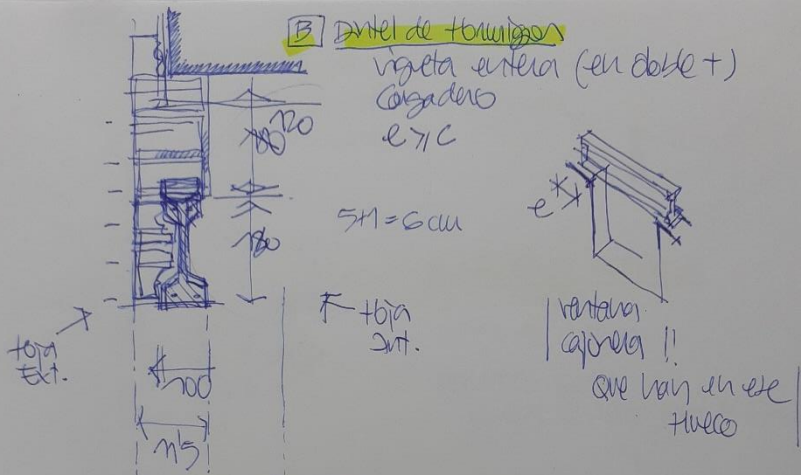 B Dintel de Hormigon
Vigueta entera (en doble t)
Cargadero
e ≥ c
120
180
5+1=6 cm
e
Hoja
Ext.
Hoja
Int.
ventana
cajonera !!
que hay en ese
Hueco
100
11'5